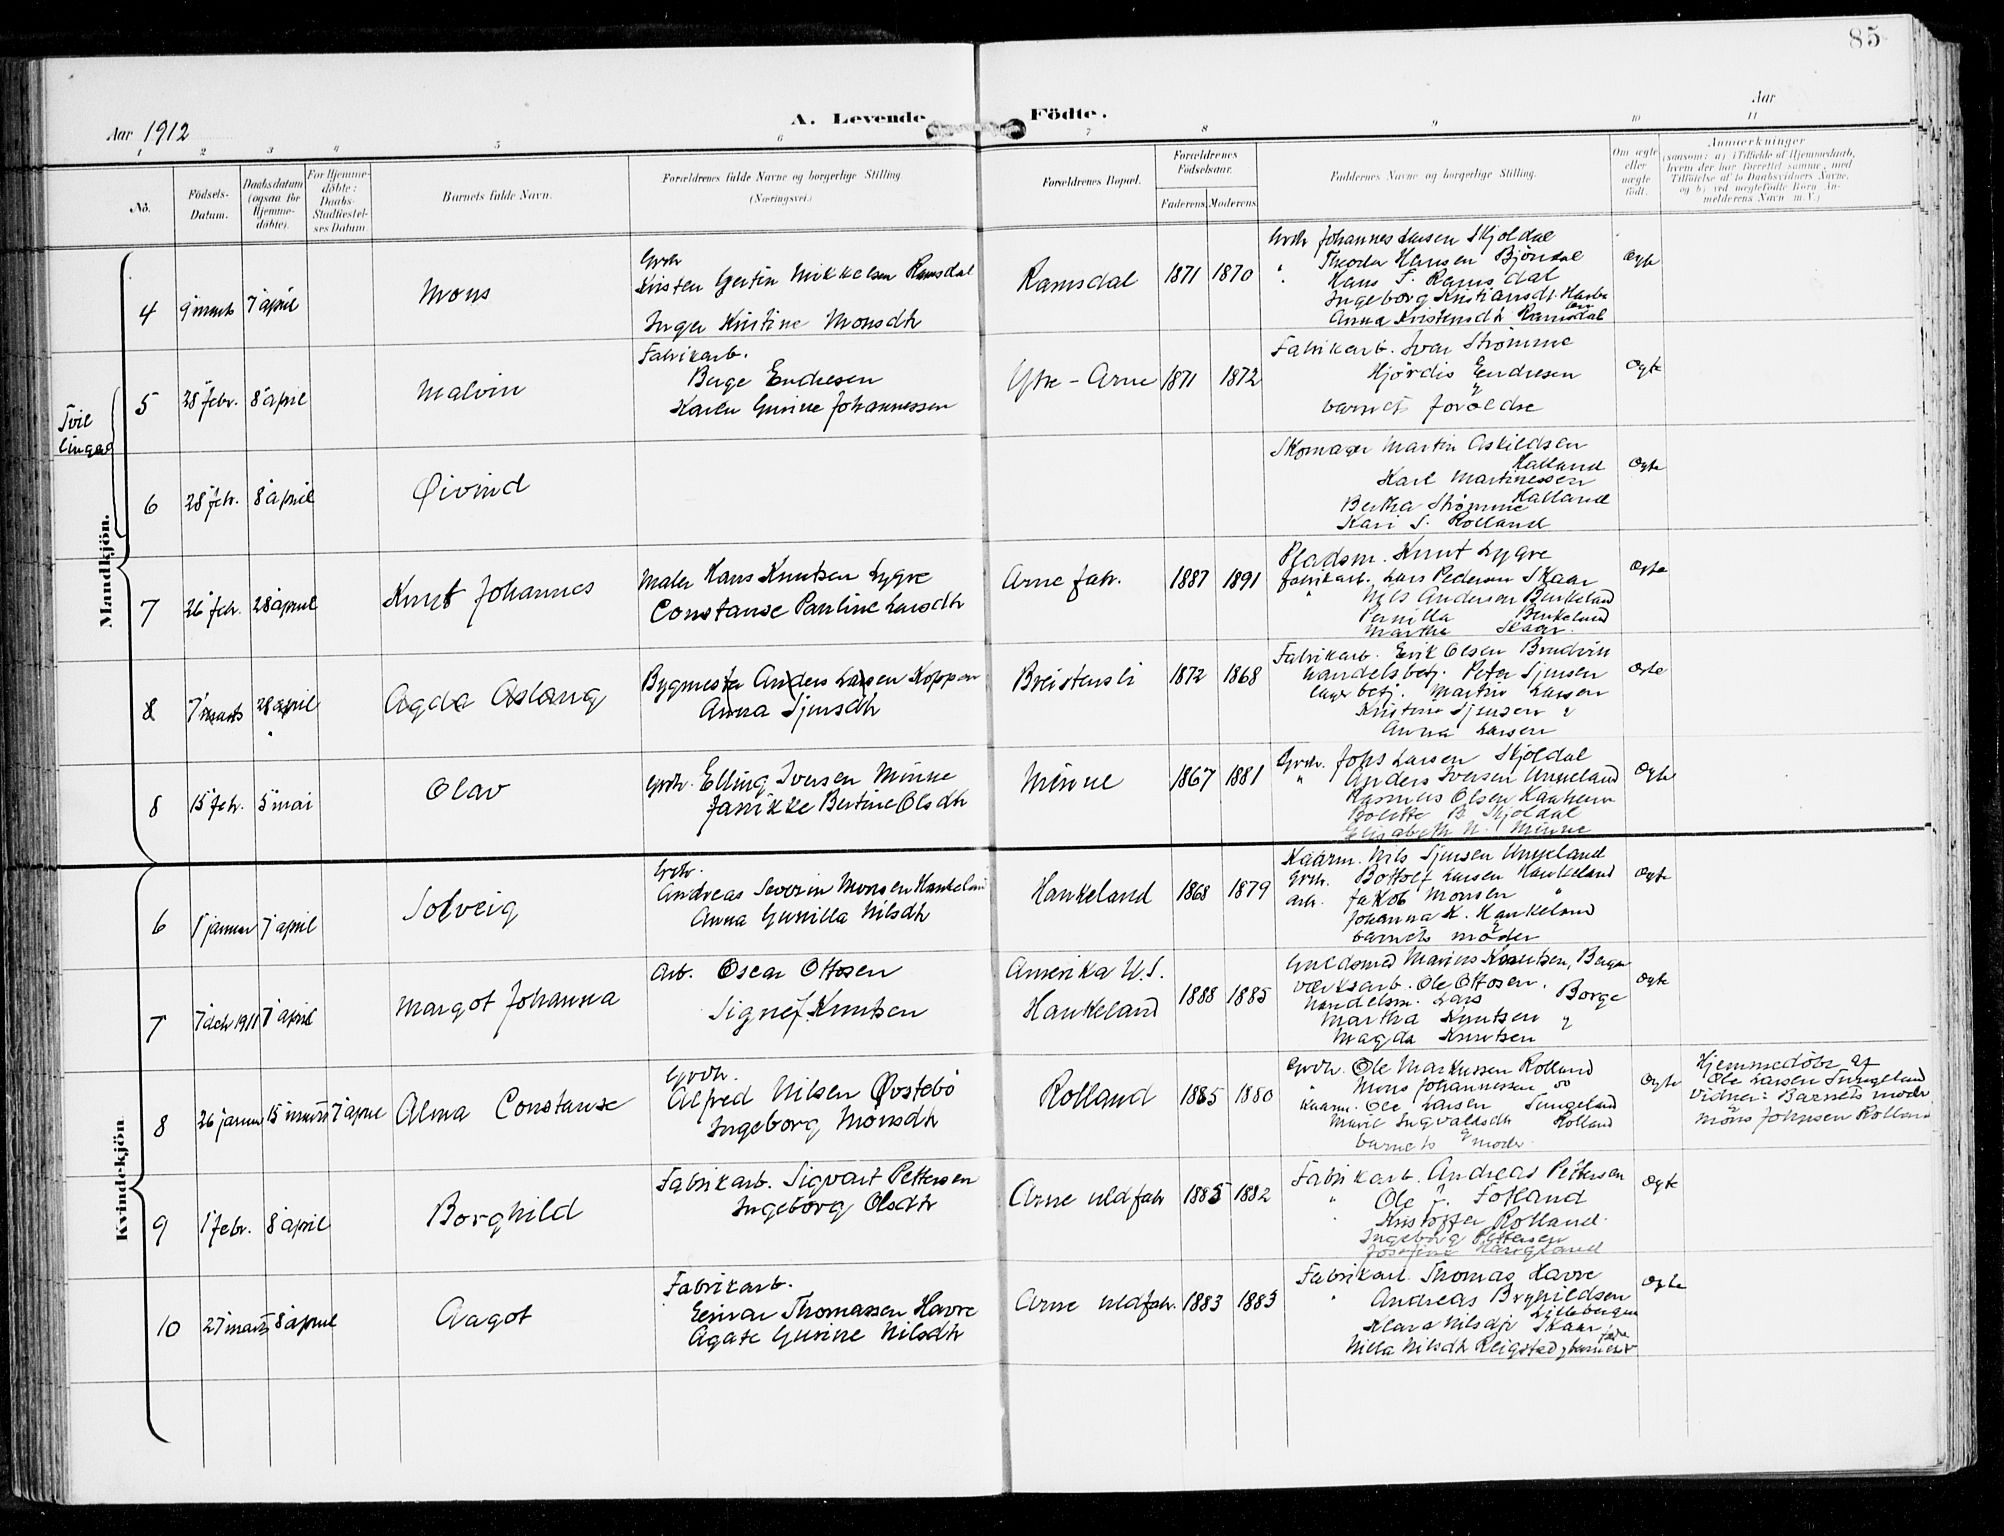 85
Aar 1912
A. Levende Födte.
Aar
1 2 3 4 5 6 7 8 9 10 11
No.
Födsels-Datum.
Daabsdatum (ogsaa for Hjemme-döbte).
For Hjemme-döbte: Daabs-Stadfæstel-ses Datum
Barnets fulde Navn.
Forældrenes fulde Navne og borgerlige Stilling. (Næringsvei.)
Forældrenes Bopæl.
Forældrenes Födselsaar.
Faderens. Moderens.
Faddernes Navne og borgerlige Stilling.
Om ægte eller uægte födt.
Anmærkninger
(saasom: a) i Tilfælde af Hjemmedaab, hvem der har forrettet samme, med Tilföielse af to Daabsvidners Navne, og b) ved uægtefödte Börn An-melderens Navn m. V.)
Mandkjön.
4 9 marts 7 april
Mons
Grdr
Kristen Gertin Mikkelsen Ramsdal
Inger Kristine Monsdtr
Ramsdal 1871 1870
Grdr Johannes Larsen Skjoldal
" Theodor Hansen Bjöndal
" Hans T. Ramsdal
Ingeborg Kristiansdt.
Anna Kristensdtr Ramsdal
Ægte
Tvil
linger
5 28 febr. 8 april
Malvin
Fabrikarb.
Berge Endresen
Karen Gurine Johannessen
Ytre-Arne 1871 1872
Fabrikarb. Ivar Strømme
Hjördis Endresen
barnets forældre
Ægte
6 28 febr. 8 april
Øivind
Skomager Martin Askildsen
Halland
Karl Martinessen
Halland
Bertha Strømme
Kari S. Rolland
Ægte
7 26 febr. 28 april
Knut Johannes
Maler Hans Knutsen Lygre
Constanse Pauline Larsdtr
Arne fabr. 1887 1891
Pladsm. Knut Lygre
fabrikarb. Lars Pedersen Skaar
" Nils Andersen Birkeland
Pernilla Birkeland
Martha Skaar.
Ægte
8 7 marts 28 april
Agda Aslaug
Bygmester Anders Larsen Koppen
Anna Sjursdtr
Breistensli 1872 1868
Fabrikarb. Erik Olsen Brudvik
handelsbetj. Peter Sjursen
lagerbetj. Martin Larsen
Kristine Sjursen
Anna Larsen
Ægte
8 15 febr. 5 mai
Olav
Grdr. Elling Iversen Minne
Janikke Bertine Olsdtr
Minne 1867 1881
Grdr. Johs Larsen Skjoldal
" Anders Iversen Unneland
Rasmus Olsen
Bolette B. Skjoldal
Elisabeth N. Minne
Ægte
Kvindekjön
6 5 januar 7 april
Solveig
Grdr.
Andreas Severin Monsen Haukeland
Anna Gunilla Nilsdtr
Haukeland 1868 1879
Kaarm. Nils Sjursen Unneland
Grdr. Bottolf Larsen Haukeland
arb. Jakob Monsen "
Johanna K. Haukeland
barnets moder
Ægte
7 7 decbr 1911 7 april
Margot Johanna
Arb. Oscar Ottosen
Signe f. Knutsen
Amerika U.S.
Haukeland 1888 1885
Guldsmed Marius Knutsen, Bergen
værksarb. Ole Ottosen.
handelsm. Lars Borge
Martha Knutsen
Magda Knutsen
Ægte
8 26 januar 15 marts 7 april
Alma Constanse
Grdr.
Alfred Nilsen Øvstebö
Ingeborg Monsdtr
Rolland 1885 1880
Grdr. Ole Markussen Rolland
" Mons Johannessen "
Kaarm. Ole Larsen Tungeland
Marit Ingvaldsdtr Rolland
barnets moder
Ægte
Hjemmedöbt af
Ole Larsen Tungeland
Vidner: Barnets moder
Mons Johnsen Rolland
9 1 febr. 8 april
Borghild
Fabrikarb. Sigvart Pettersen
Ingeborg Olsdtr
Arne uldfabr 1885 1882
Fabrikarb. Andreas Pettersen
" Ole J. Fotland
" Kristoffer Rolland
Ingeborg Pettersen
Josefine Haugland
Ægte
10 27 marts 8 april
Aagot
Fabrikarb.
Einar Thomassen Havre
Agate Gurine Nilsdtr
Arne uldfabr. 1883 1883
Fabrikarb. Thomas Havre
" Andreas Brynildsen
Lillebergen
Klara Nilsdtr Skaar
Nilla Nilsdtr Reigstad
Ægte